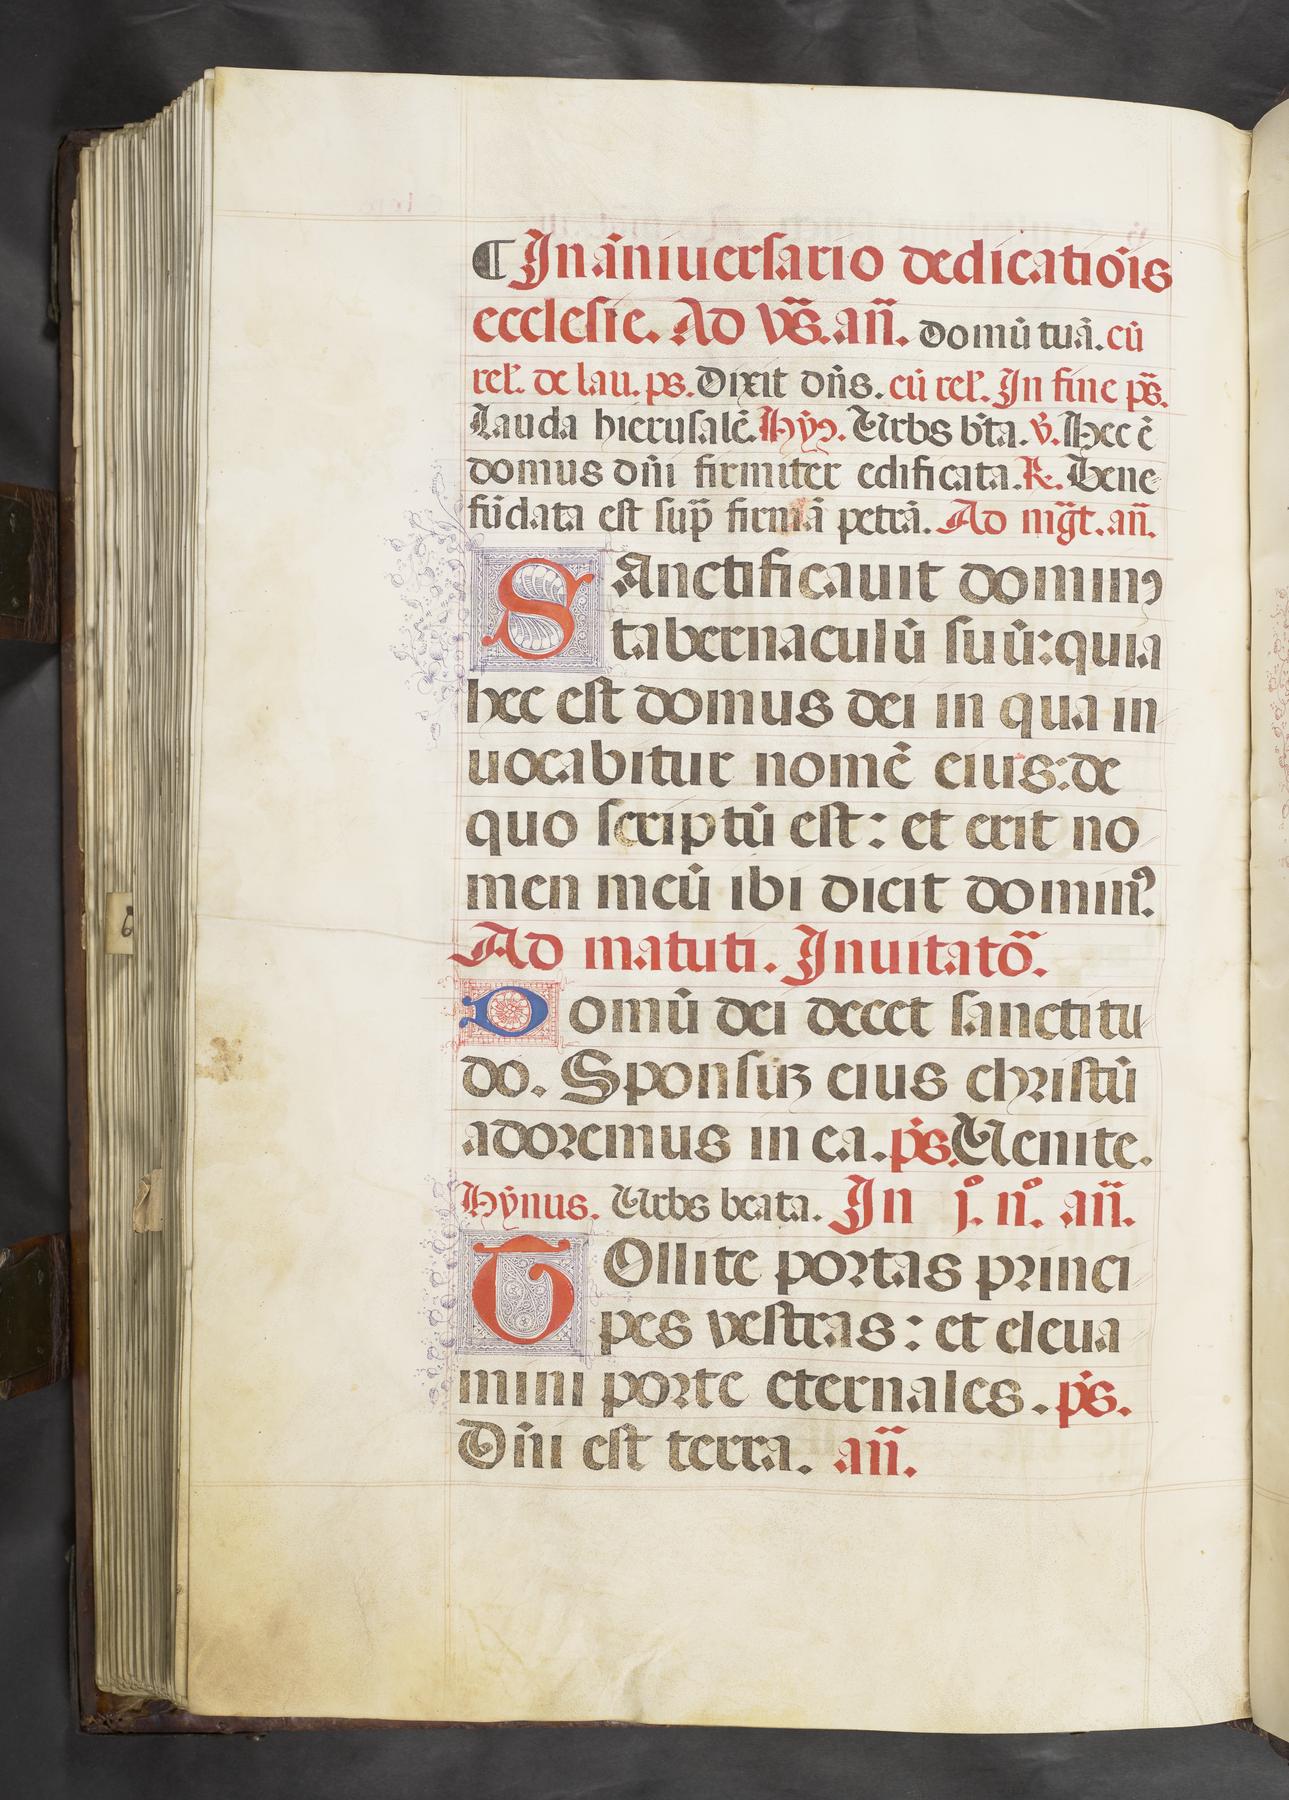 ¶ In āniuersario dedicatiōis
ecclesie. Ad vs̄. añ. domū tuā. cū
rel̄. de lau. ps. Dixit dñs. cū rel̄. In fine ps̄.
Lauda hierusalē. Hȳ9. Urbs b̄ta. v̄. Hec ē
domus dñi firmiter edificata. R̄. Bene
fūdata est sup̄ firmā petrā. Ad mḡt. añ.
SAnctificauit domin9
tabernaculū suū: quia
hec est domus dei in qua in
uocabitur nomē eius: de
quo scriptū est: et erit no
men meū ibi dicit domin9.
Ad matuti. Inuitatō.
Domū dei decet sanctitu
do. Sponsūz eius christū
adoremus in ea. p̄s. Uenite.
Hȳnus. Urbs beata. In j.º n.º añ.
TOllite portas princi
pes vestras: et eleua
mini porte eternales. p̄s.
Dñi est terra. añ.
6